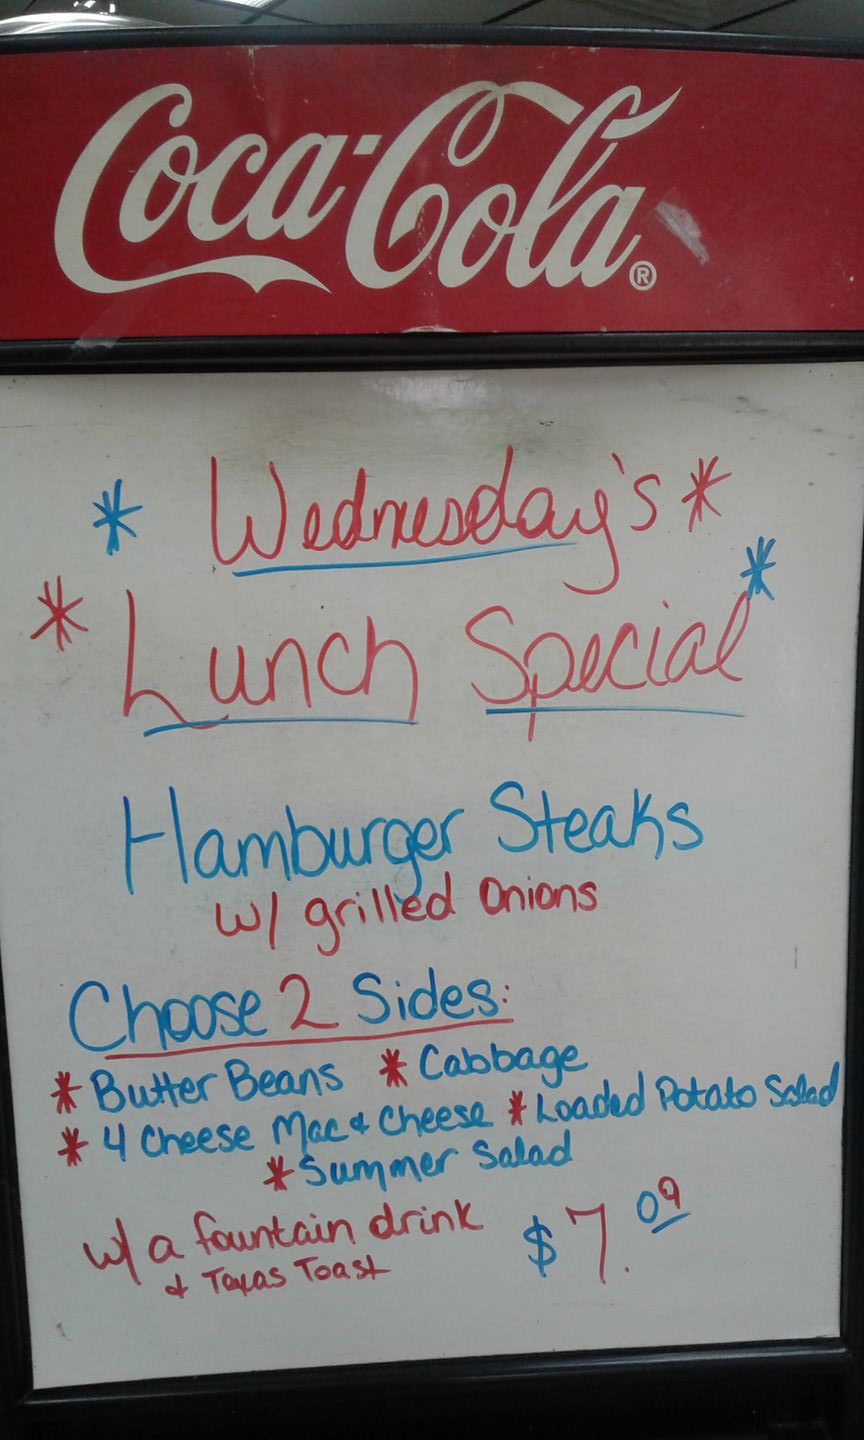 Coca-Cola®
* Wednesday's *
* Lunch Special *
Hamburger Steaks
w/ grilled onions
Choose 2 Sides:
* Butter Beans * Cabbage
* 4 Cheese Mac & Cheese * Loaded Potato Salad
* Summer Salad
w/ a fountain drink $7.09
& Texas Toast